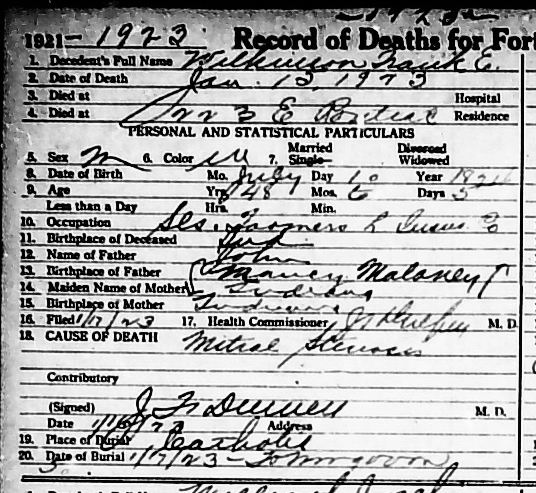 1921 - 1923 Record of Deaths for Fort
1. Decedent's Full Name Wilkinson Frank E.
2. Date of Death Jan. 13, 1923
3. Died at Hospital
4. Died at 223 E Pontiac Residence
PERSONAL AND STATISTICAL PARTICULARS
5. Sex M 6. Color W 7. Married Single Divorced Widowed
8. Date of Birth Mo. July Day 10 Year
9. Age Yrs. 48 Mos. 6 Days 3
Less than a Day Hrs. Min.
10. Occupation
11. Birthplace of Deceased Ind
12. Name of Father John
13. Birthplace of Father
14. Maiden Name of Mother Nancy Maloney
15. Birthplace of Mother Indiana
16. Filed 1/17/23 17. Health Commissioner M. D.
18. CAUSE OF DEATH Mitral Stenosis
Contributory
(Signed) J. M. D.
Date 1/16/23 Address
19. Place of Burial Catholic
20. Date of Burial 1/17/23